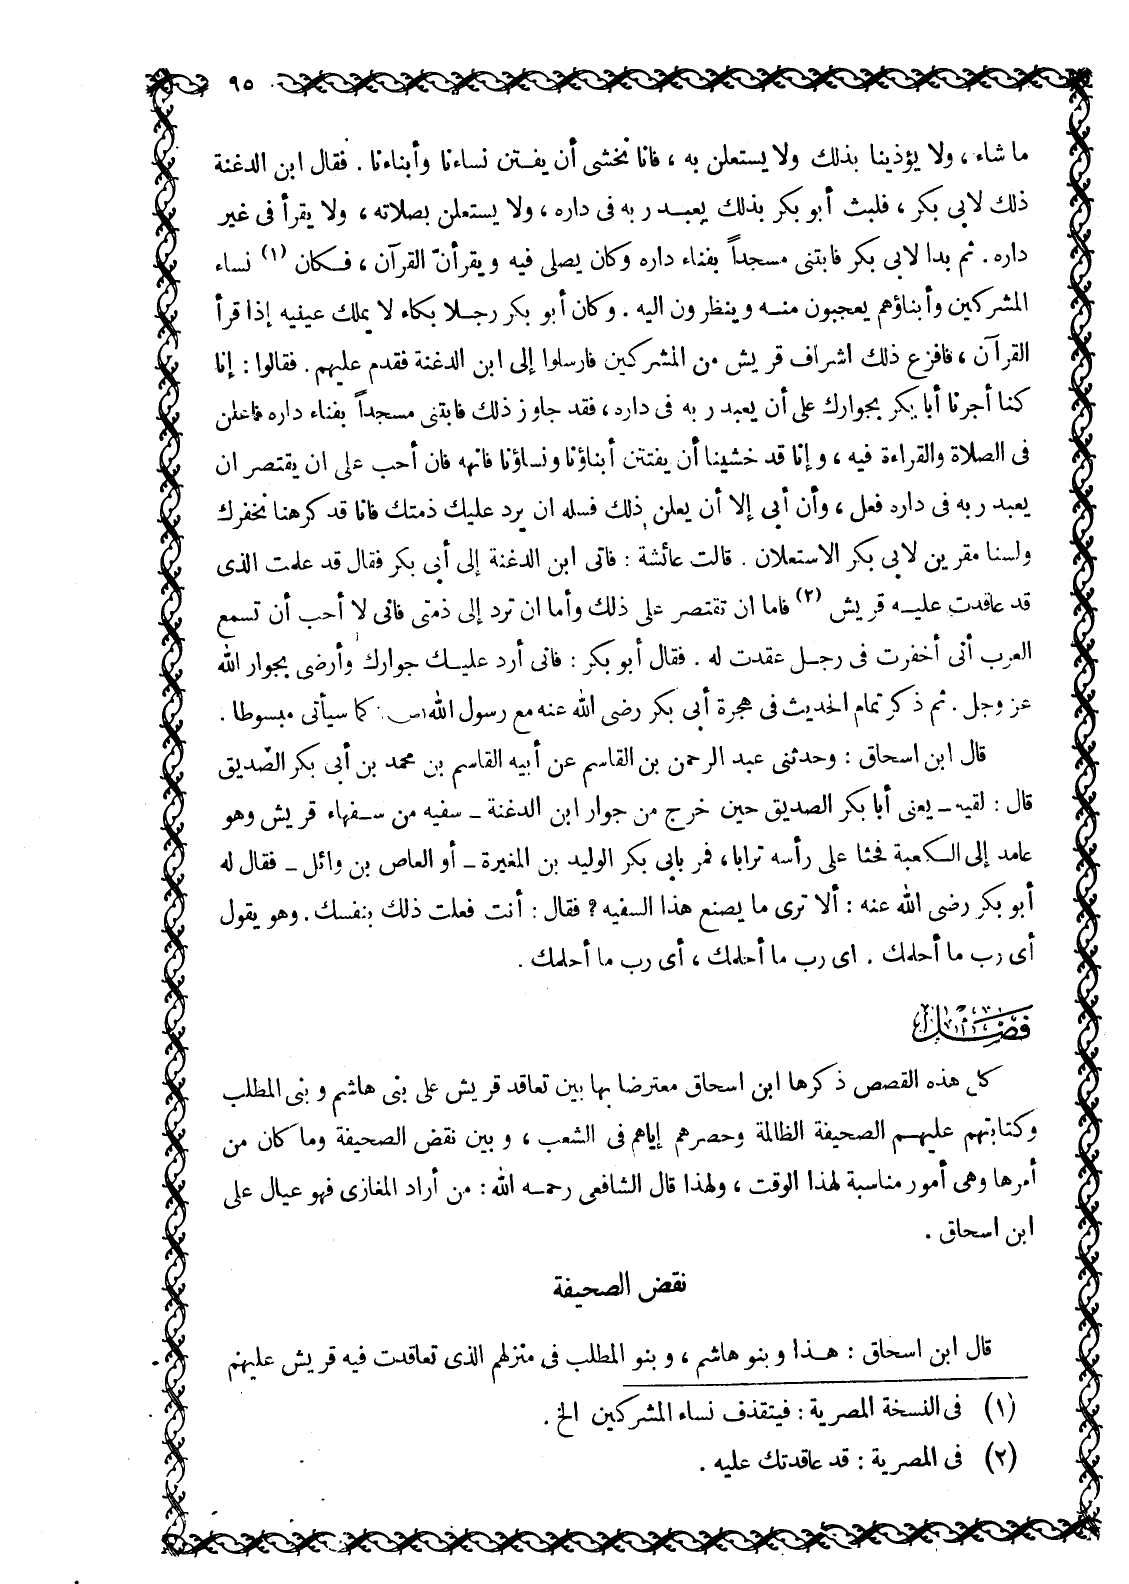 ٩٥
ما شاء ، ولا يؤذينا بذلك ولا يستعلن به ، فانا نخشى أن يفـتن نساءنا وأبناءنا . فقال ابن الدغنة
ذلك لابى بكر ، فلبث أبو بكر بذلك يعبـد ربه فى داره ، ولا يستعلن بصلاته ، ولا يقرأ فى غير
داره . ثم بدا لابى بكر فابتنى مسجداً بفناء داره وكان يصلى فيه ويقرأنّ القرآن ، فـكان (١) نساء
المشركين وأبناؤهم يعجبون منـه وينظرون اليه . وكان أبو بكر رجـلا بكاء لا يملك عينيه إذا قرأ
القرآن ، فافزع ذلك اشراف قريش من المشركين فارسلوا إلى ابن الدغنة فقدم عليهم . فقالوا : إنا
كنا أجرنا أبا بكر بجوارك على أن يعبد ربه فى داره ، فقد جاوز ذلك فابتنى مسجداً بفناء داره فاعلن
فى الصلاة والقراءة فيه ، وإنا قد خشينا أن يفتتن أبناؤنا ونساؤنا فانهه فان أحب على ان يقتصر ان
يعبد ربه فى داره فعل ، وأن أبى إلا أن يعلن ذلك فسله ان يرد عليك ذمتك فانا قد كرهنا نخفرك
ولسنا مقرين لابى بكر الاستعلان . قالت عائشة : فاتى ابن الدغنة إلى أبى بكر فقال قد علمت الذى
قد عاقدت عليـه قريش (٢) فاما ان تقتصر على ذلك وأما ان ترد إلى ذمتى فانى لا أحب أن تسمع
العرب أنى أخفرت فى رجـل عقدت له . فقال أبو بكر : فانى أرد عليـك جوارك وأرضى بجوار الله
عز وجل . ثم ذكر تمام الحديث فى هجرة أبى بكر رضى الله عنه مع رسول الله ص كما سيأتى مبسوطا .
قال ابن اسحاق : وحدثنى عبد الرحمن بن القاسم عن أبيه القاسم بن محمد بن أبى بكر الصّديق
قال : لقيه ـ يعنى أبا بكر الصديق حين خرج من جوار ابن الدغنة ـ سفيه من سـفهاء قريش وهو
عامد إلى الـكعبة فحثا على رأسه ترابا ، فمر بابى بكر الوليد بن المغيرة ـ أو العاص بن وائل ـ فقال له
أبو بكر رضى الله عنه : ألا ترى ما يصنع هذا السفيه ؟ فقال : أنت فعلت ذلك بنفسك . وهو يقول
أى رب ما أحلمك . اى رب ما أحلمك ، أى رب ما أحلمك .
فصل
كل هذه القصص ذكرها ابن اسحاق معترضا بها بين تعاقد قريش على بنى هاشم وبنى المطلب
وكتابتهم عليهـم الصحيفة الظالمة وحصرهم إياهم فى الشعب ، وبين نقض الصحيفة وما كان من
أمرها وهى أمور مناسبة لهذا الوقت ، ولهذا قال الشافعى رحمـه الله : من أراد المغازى فهو عيال على
ابن اسحاق .
نقض الصحيفة
قال ابن اسحاق : هـذا وبنو هاشم ، وبنو المطلب فى منزلهم الذى تعاقدت فيه قريش عليهم
(١) فى النسخة المصرية : فيتقذف نساء المشركين الخ .
(٢) فى المصرية : قد عاقدتك عليه .